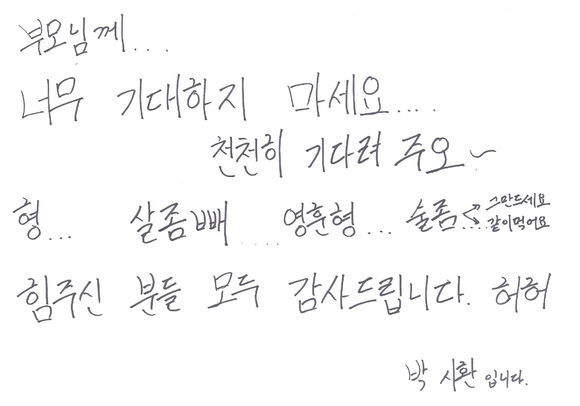 부모님께...
너무 기대하지 마세요....
천천히 기다려 주오~
형... 살좀빼.... 영훈형... 술좀.... 그만드세요
같이먹어요
힘주신 분들 모두 감사드립니다. 허허
박 시환 입니다.